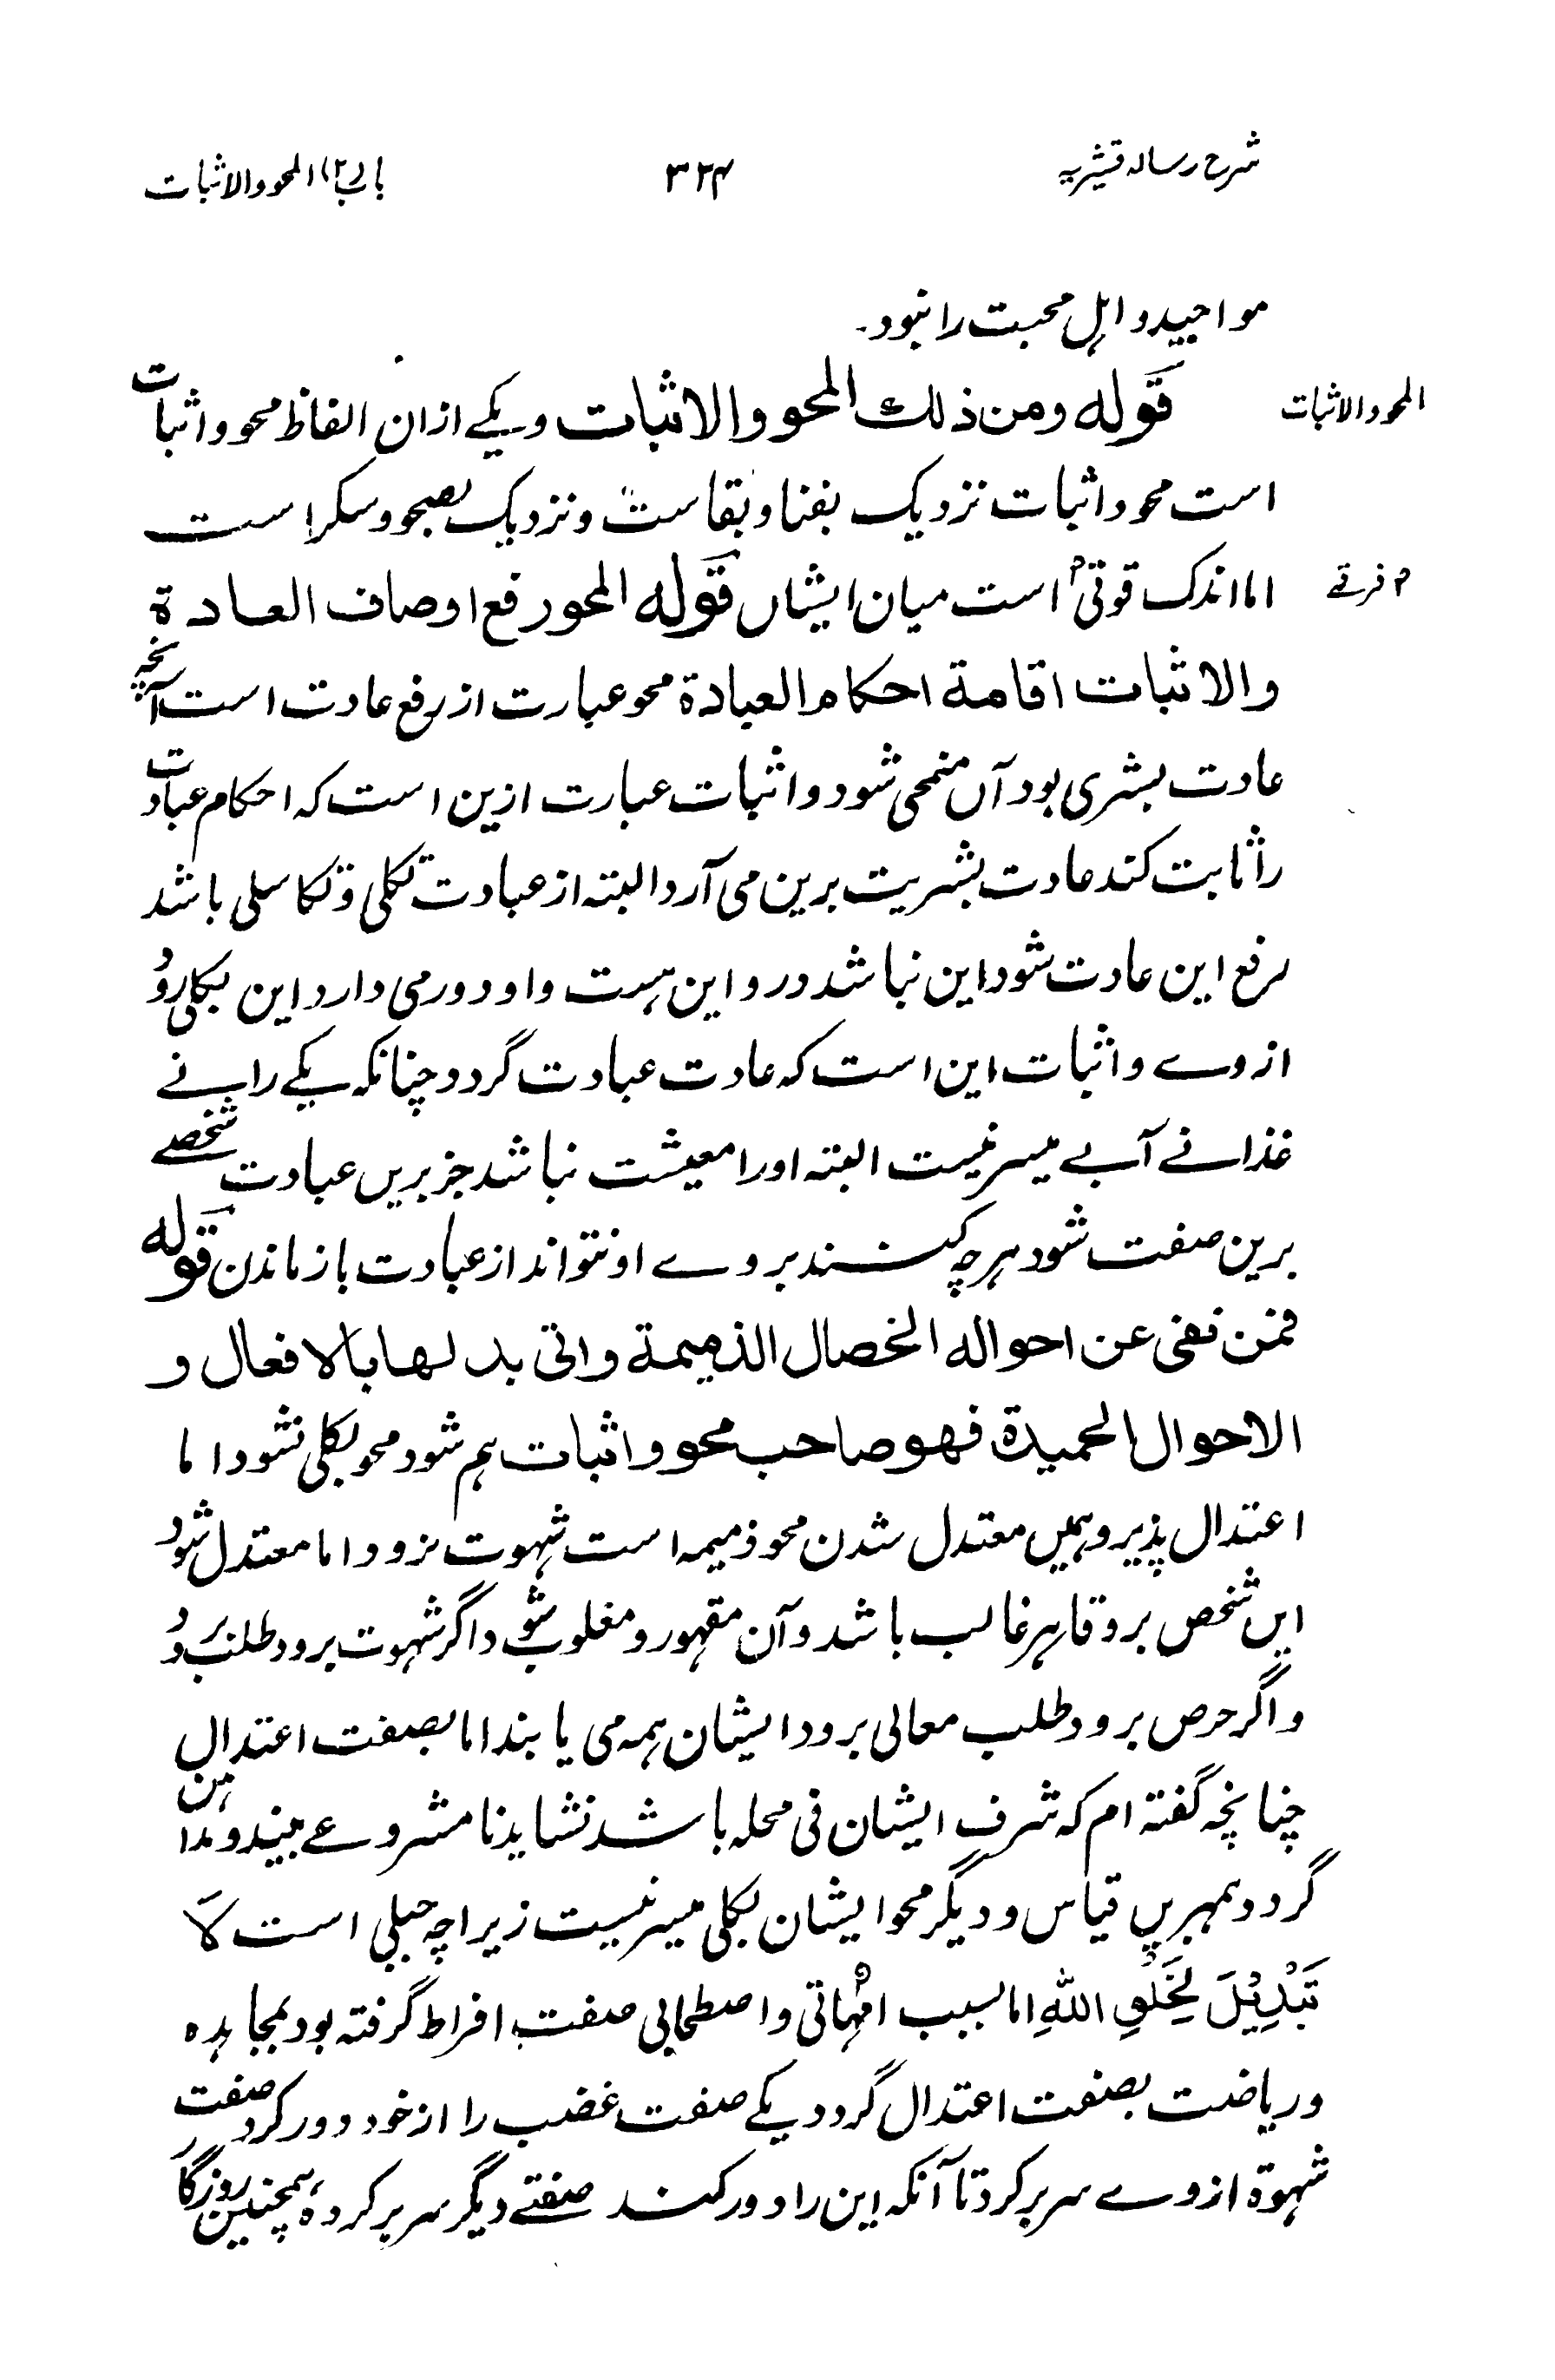 شرح رسالہ قشیریہ
۳۲۴
باب (۲) المحو والاثبات
مواجید و اہل محبت را نبود۔
المحو والاثبات
قوله ومن ذلك المحو والاثبات و یکے ازان الفاظ محو و اثبات
است محو و اثبات نزدیک بفنا و بقاست و نزدیک بصحو و سکر است
اما اندک قوتی م است میان ایشاں قوله المحو رفع اوصاف العادة
م فرقے
والاثبات اقامة احكام العبادة محو عبارت از رفع عادت است آنچہ
عادت بشری بود آں منمحی شود و اثبات عبارت ازین است کہ احکام عبادت
را ثابت کند عادت بشریت برین می آرد البتہ از عبادت تکلی و تکاسلی باشد
رفع این عادت شود این نباشد در و این ہست و او دور می دارد این بکلی رود
از وے و اثبات این است کہ عادت عبادت گردد چنانکہ یکے را بے
غذا نے آبے میسر نیست البتہ او را معیشت نباشد جز بریں عبادت شخصے
برین صفت شود ہرچہ کنند بر وے او نتواند از عبادت باز ماندن قوله
فمن نفى عن احواله الخصال الذميمة واتى بدلها بالافعال و
الاحوال الحميدة فهو صاحب محو و اثبات ہم شود محو بکلی نشود اما
اعتدال پذیر و ہمیں معتدل شدن محو ذمیمہ است شہوت نرود اما معتدل شود
ایں شخص برو قاہر غالب باشد و آن مقہور و مغلوب شود اگر شہوت برود طلب برود
و اگر حرص برود طلب معالی برود ایشان ہمہ می یابند اما بصفت اعتدال
چنانچہ گفتہ ام کہ شرف ایشان فی محلہ باشد نشاید نا مشروعے بیند و
گردد ہمبریں قیاس و دیگر محو ایشان بکلی میسر نیست زیرا چہ جبلی است لَا
تَبْدِيْلَ لِخَلْقِ اللهِ اما بسبب امّہاتی و اصطحابی صفت افراط گرفتہ بود بمجاہدہ
و ریاضت بصفت اعتدال گردد یکے صفت غضب را از خود دور کرد صفت
شہوة از وے سر بر کرد تا آنکہ این را دور کند صفتے دیگر سر بر کردہ، ہمچنین روزگار